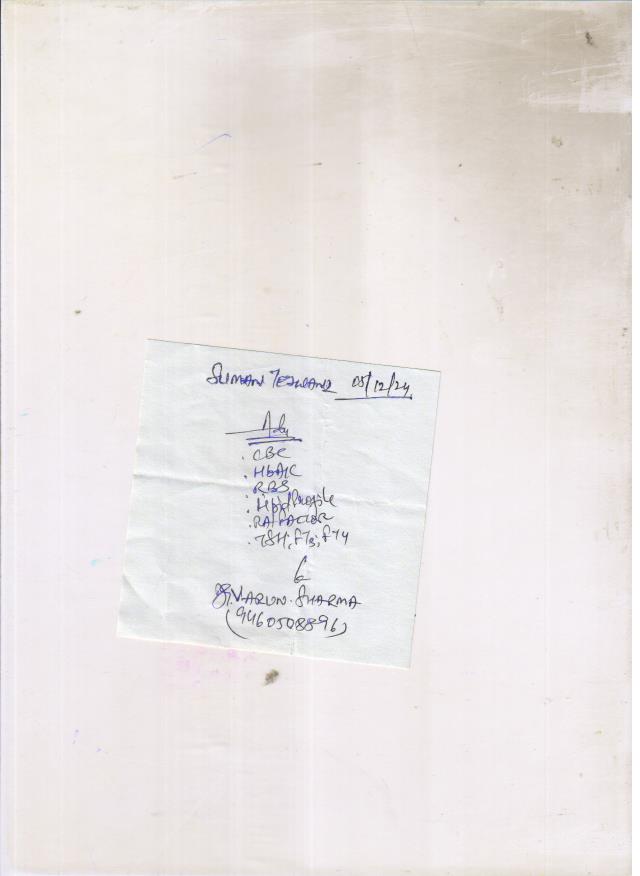 SUMAN TEJWANI 05/12/24
Adv
. CBC
. HbA1C
. RBS
. Lipid Profile
. RA FACTOR
. TSH, FT3, FT4
Dr. VARUN SHARMA
(9460508896)